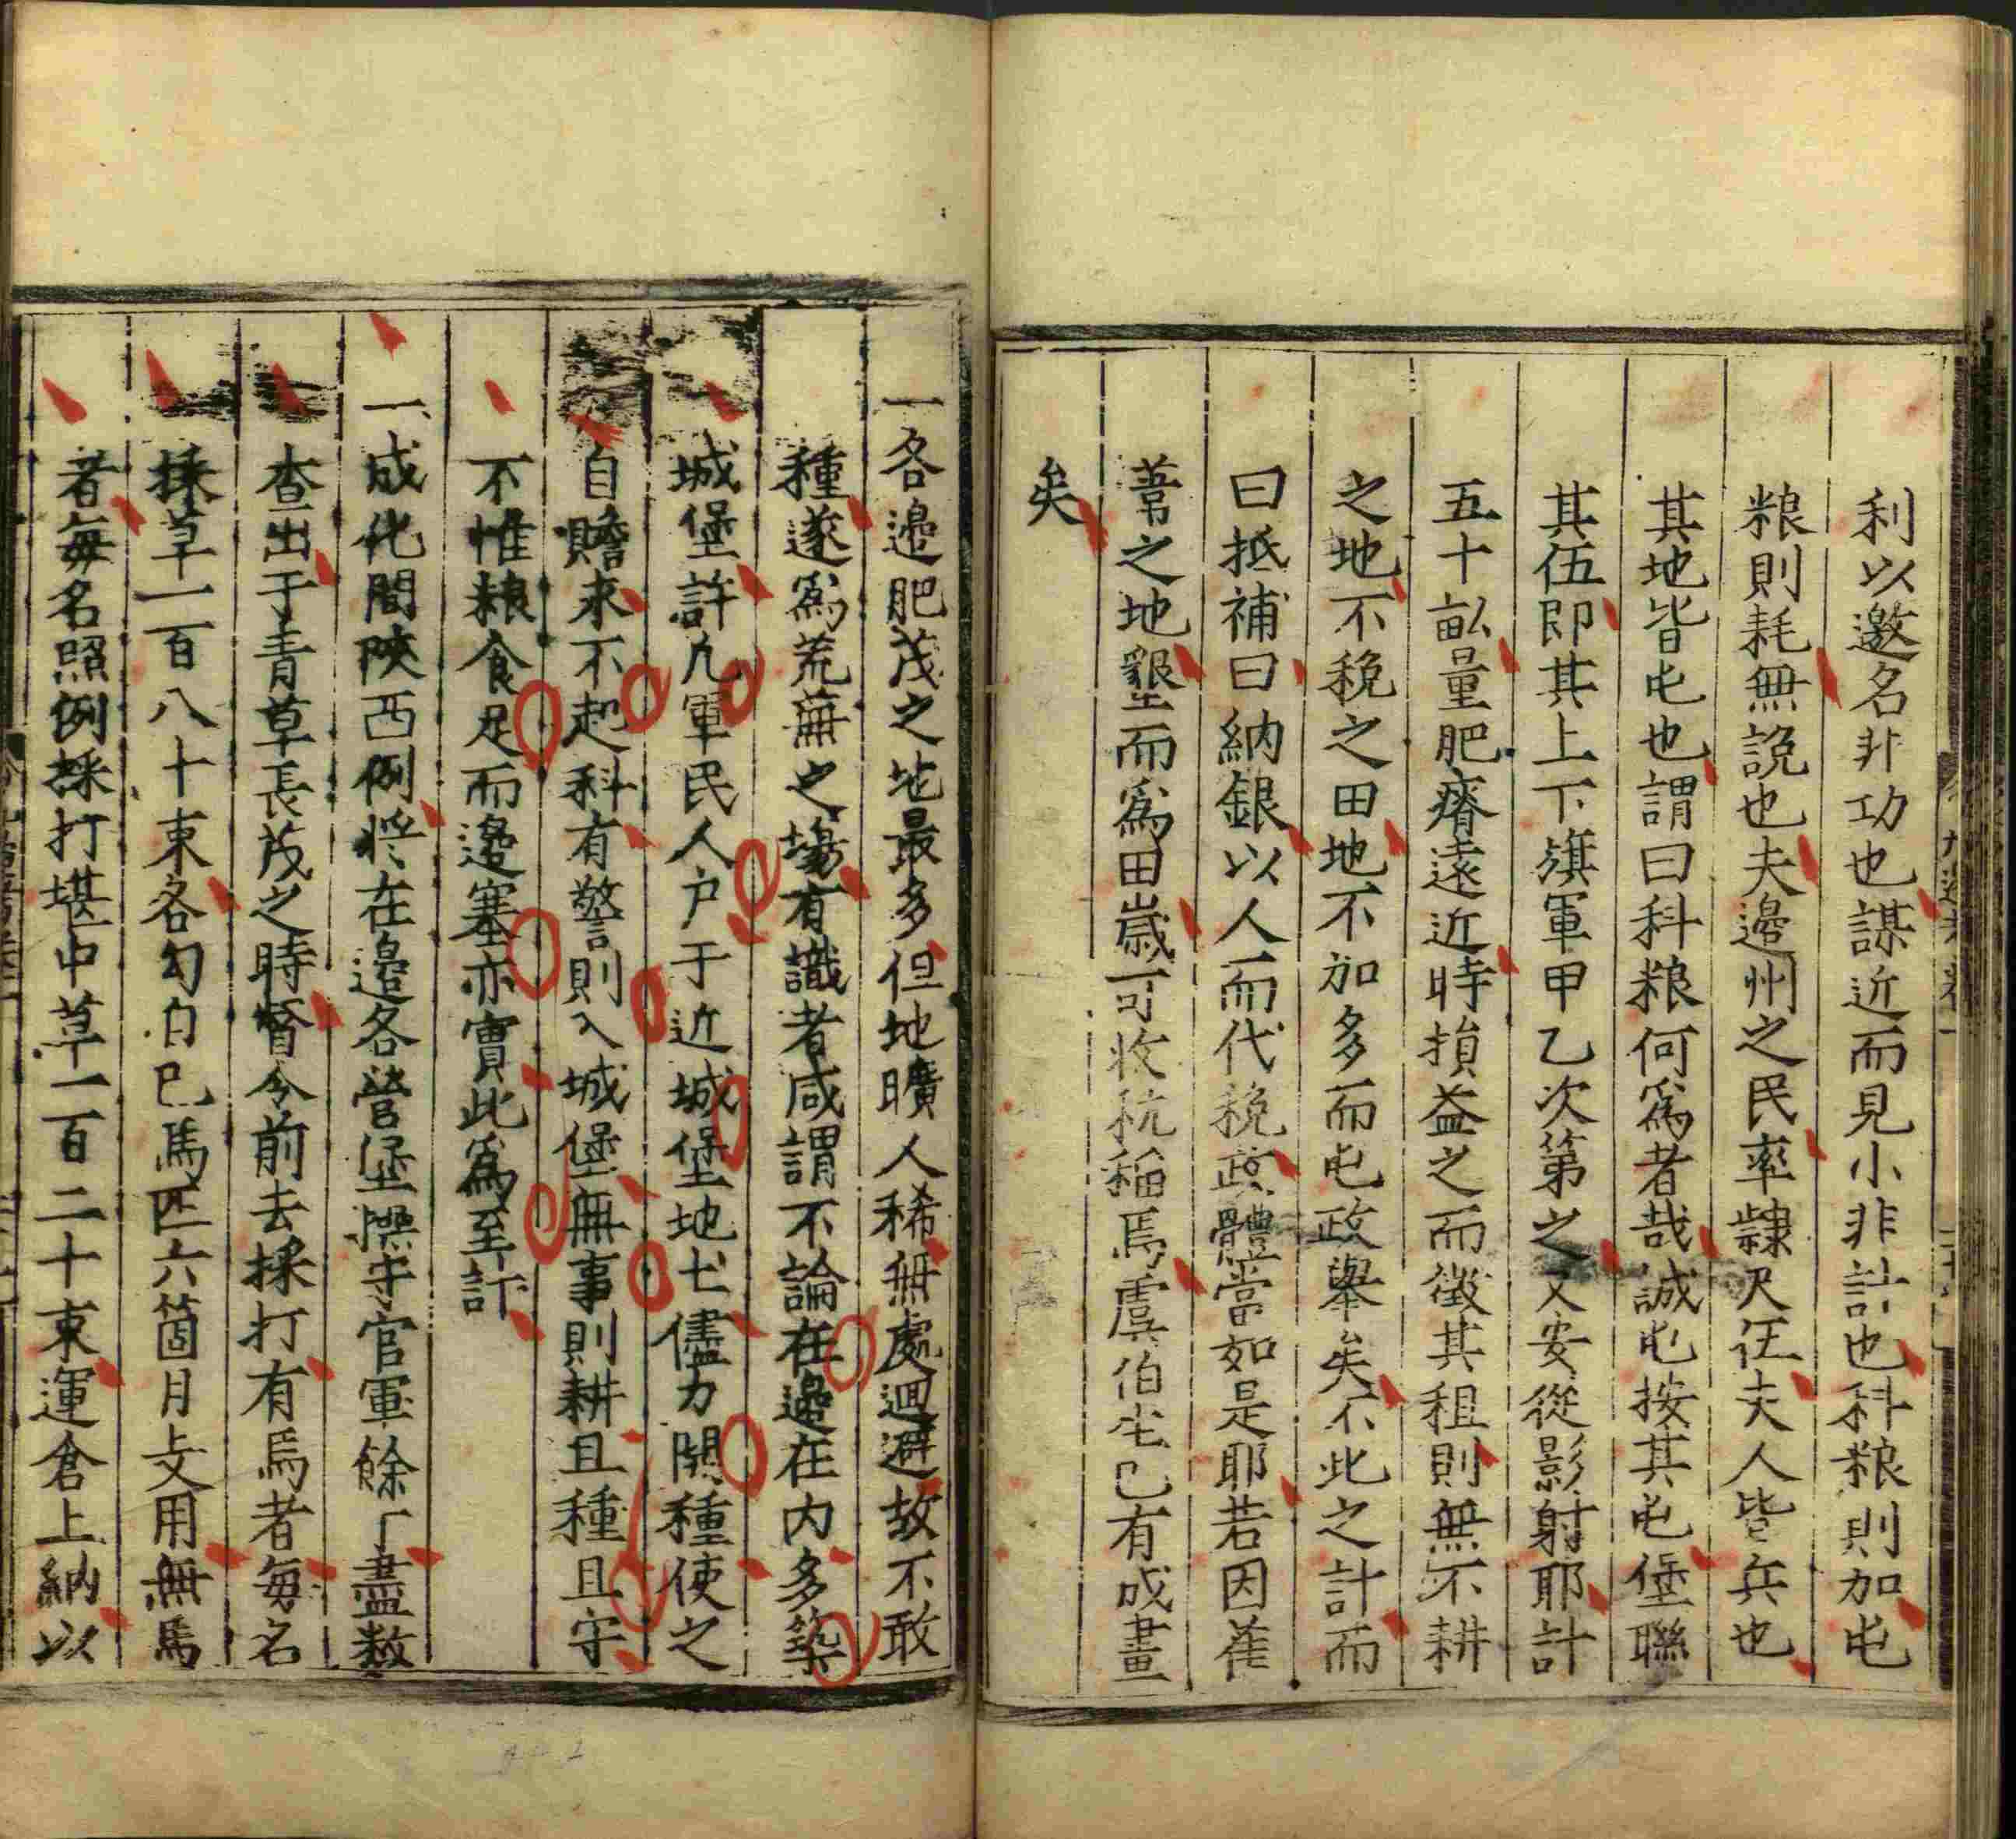 利以邀名非功也謀近而見小非計也科粮則加屯
粮則耗無說也夫邊州之民率隸尺伍夫人皆兵也
其地皆屯也謂曰科粮何爲者哉誠屯按其屯堡聯
其伍即其上下旗軍甲乙次第之又安從影射耶計
五十畝量肥瘠遠近時損益之而徵其租則無不耕
之地不稅之田地不加多而屯政舉矣不此之計而
曰抵補曰納銀以人而代稅政體當如是耶若因萑
葦之地墾而爲田歲可收秔稲焉虞伯生已有成畫
矣
一各邊肥茂之地最多但地曠人稀無處迴避故不敢
種遂爲荒蕪之場有識者咸謂不論在邊在内多築
城堡許凡軍民人户于近城堡地土儘力開種使之
自贍來不起科有警則入城堡無事則耕且種且守
不惟粮食足而邊塞亦實此爲至計
一成化間陝西例将在邊各營堡操守官軍餘丁盡数
查出于青草長茂之時督令前去採打有馬者每名
採草一百八十束各勾自己馬匹六箇月支用無馬
者每名照例採打堪中草一百二十束運倉上納以